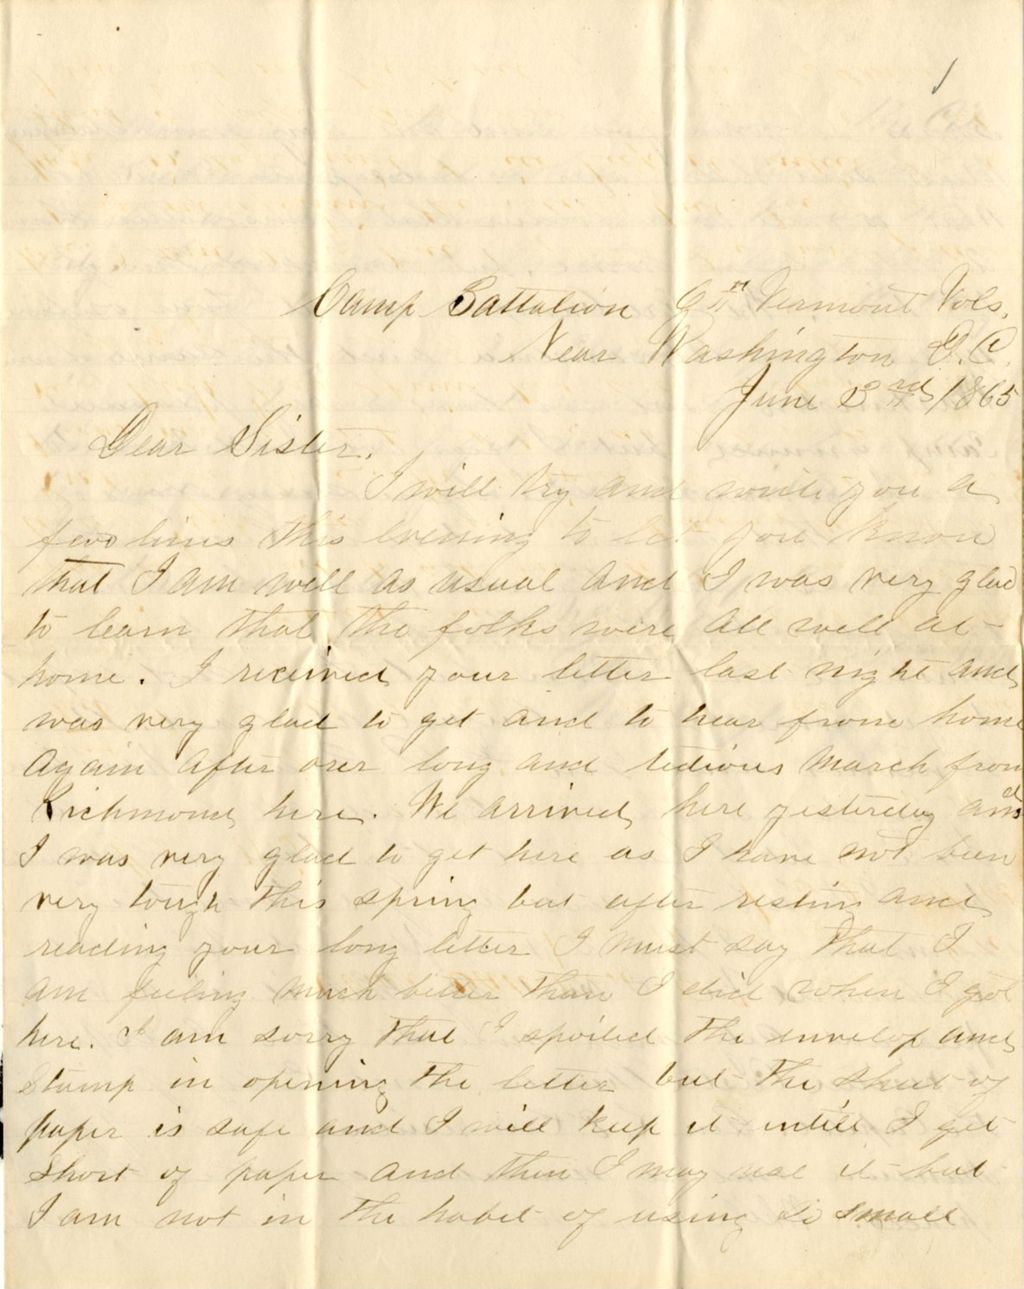 Camp Battalion 9th Vermont Vols,
Near Washington D.C.
June 2nd / 1865
Dear Sister.
I will try and write you a
few lines this evening to let you know
that I am well as usual and I was very glad
to learn that the folks were all well at
home. I received your letter last night and
was very glad to get and to hear from home
again after over long and tedious march from
Richmond here. We arrived here yesterday and
I was very glad to get here as I have not been
very tough this spring but after resting and
reading your long letter I must say that I
am feeling much better than I did when I got
here. I am sorry that I spoiled the envelop and
stamp in opening the letter but the sheet of
paper is safe and I will keep it untill I get
short of paper and then I may use it but
I am not in the habit of using so small